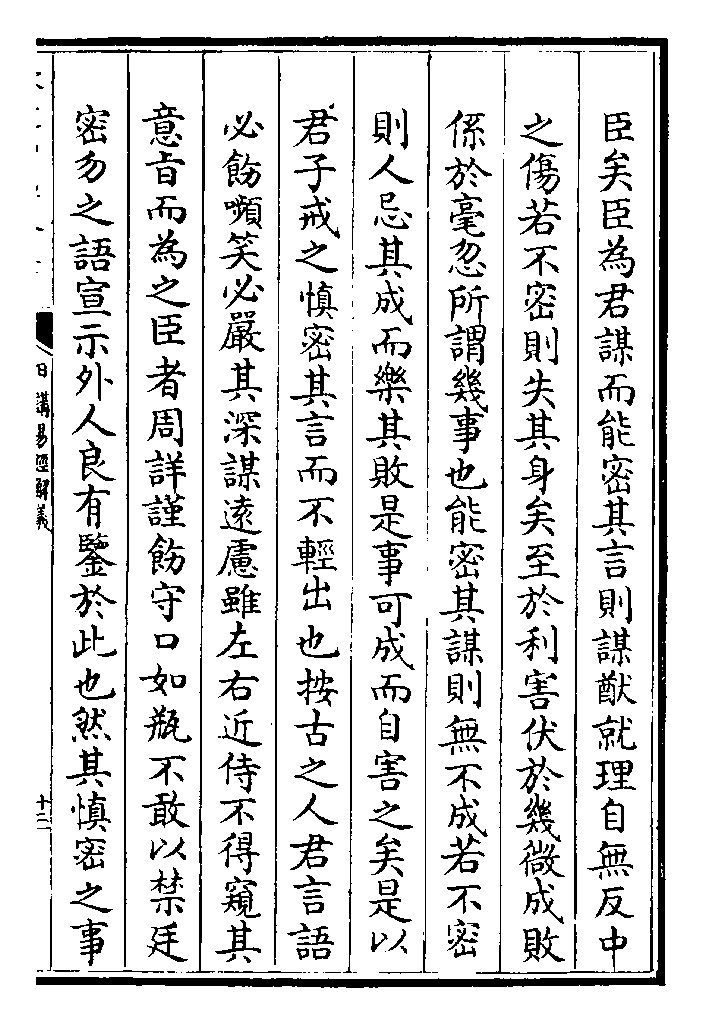 臣矣臣為君謀而能密其言則謀猷就理自無反中
之傷若不密則失其身矣至於利害伏於幾微成敗
係於毫忽所謂幾事也能密其謀則無不成若不密
則人忌其成而樂其敗是事可成而自害之矣是以
君子戒之慎密其言而不輕出也按古之人君言語
必飭嚬笑必嚴其深謀遠慮雖左右近侍不得窺其
意旨而為之臣者周詳謹飭守口如瓶不敢以禁廷
密勿之語宣示外人良有鑒於此也然其慎密之事
日講易經解義
十二